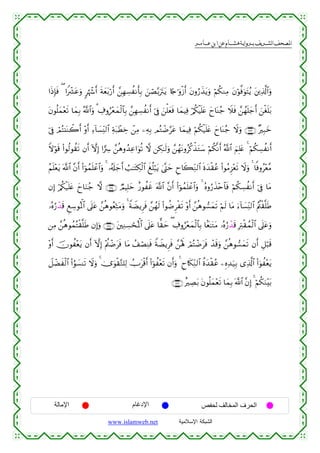 المصحف الشريف برواية هشام عن ابن عامر
وَالَّذِينَ يُتَوَفَّوْنَ مِنكُمْ وَيَذَرُونَ أَزْوَٰجًا يَتَرَبَّصْنَ بِأَنفُسِهِنَّ أَرْبَعَةَ أَشْهُرٍ وَعَشْرًا ۖ فَإِذَا
بَلَغْنَ أَجَلَهُنَّ فَلَا جُنَاحَ عَلَيْكُمْ فِيمَا فَعَلْنَ فِي أَنفُسِهِنَّ بِالْمَعْرُوفِ ۗ وَاللَّهُ بِمَا تَعْمَلُونَ
خَبِيرٌ وَلَا جُنَاحَ عَلَيْكُمْ فِيمَا عَرَّضْتُم بِهِۦ مِنْ خِطْبَةِ النِّسَآءِ أَوْ أَكْنَنتُمْ فِي
أَنفُسِكُمْ ۚ عَلِمَ اللَّهُ أَنَّكُمْ سَتَذْكُرُونَهُنَّ وَلَٰكِن لَّا تُوَاعِدُوهُنَّ سِرًّا إِلَّا أَن تَقُولُوا قَوْلًا
مَّعْرُوفًا ۚ وَلَا تَعْزِمُوا عُقْدَةَ النِّكَاحِ حَتَّىٰ يَبْلُغَ الْكِتَٰبُ أَجَلَهُۥ ۚ وَاعْلَمُوا أَنَّ اللَّهَ يَعْلَمُ
مَا فِي أَنفُسِكُمْ فَاحْذَرُوهُ ۚ وَاعْلَمُوا أَنَّ اللَّهَ غَفُورٌ حَلِيمٌ لَّا جُنَاحَ عَلَيْكُمْ إِن
طَلَّقْتُمُ النِّسَآءَ مَا لَمْ تَمَسُّوهُنَّ أَوْ تَفْرِضُوا لَهُنَّ فَرِيضَةً ۚ وَمَتِّعُوهُنَّ عَلَى الْمُوسِعِ قَدْرُهُۥ
وَعَلَى الْمُقْتِرِ قَدْرُهُۥ مَتَٰعًا بِالْمَعْرُوفِ ۖ حَقًّا عَلَى الْمُحْسِنِينَ وَإِن طَلَّقْتُمُوهُنَّ مِن
قَبْلِ أَن تَمَسُّوهُنَّ وَقَدْ فَرَضْتُمْ لَهُنَّ فَرِيضَةً فَنِصْفُ مَا فَرَضْتُمْ إِلَّا أَن يَعْفُونَ أَوْ
يَعْفُوَا الَّذِي بِيَدِهِۦ عُقْدَةُ النِّكَاحِ ۚ وَأَن تَعْفُوا أَقْرَبُ لِلتَّقْوَىٰ ۚ وَلَا تَنسَوُا الْفَضْلَ
بَيْنَكُمْ ۚ إِنَّ اللَّهَ بِمَا تَعْمَلُونَ بَصِيرٌ
الحرف المخالف لحفص الإدغام الإمالة
الشبكة الإسلامية www.islamweb.net